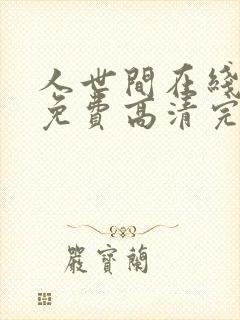 人世間在綫
免費高清完
嚴寶蘭